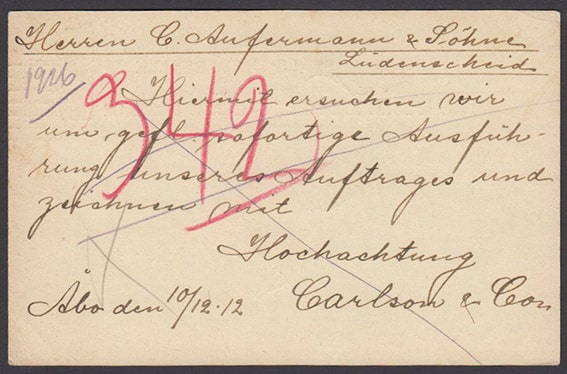 Herren C. Aufermann & Söhne
Lüdenscheid
1926
342
Hiermit ersuchen wir
um gefl. sofortige Ausfüh-
rung unseres Auftrages und
zeichnen mit
Hochachtung
Åbo den 10/12.12 Carlson & Co